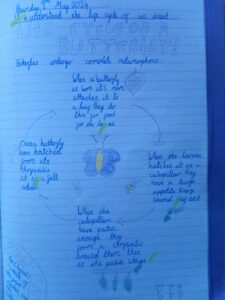 Thursday 9th May 2024
understand the life cycle of an insect
LIFE CYCLE OF A
BUTTERFLY!
Butterflies undergo complete metamorphosis
When a butterfly
is born it's mum
attaches it to
a leaf they do
this for food
for the
When the larvae
hatches it is a caterpillar
they have a large
appetite
eat
When the
caterpillar
have eaten
enough they
form a chrysalis
around them this
is the pupa stage
Once a butterfly
has hatched
from its
chrysalis
it is a full
adult